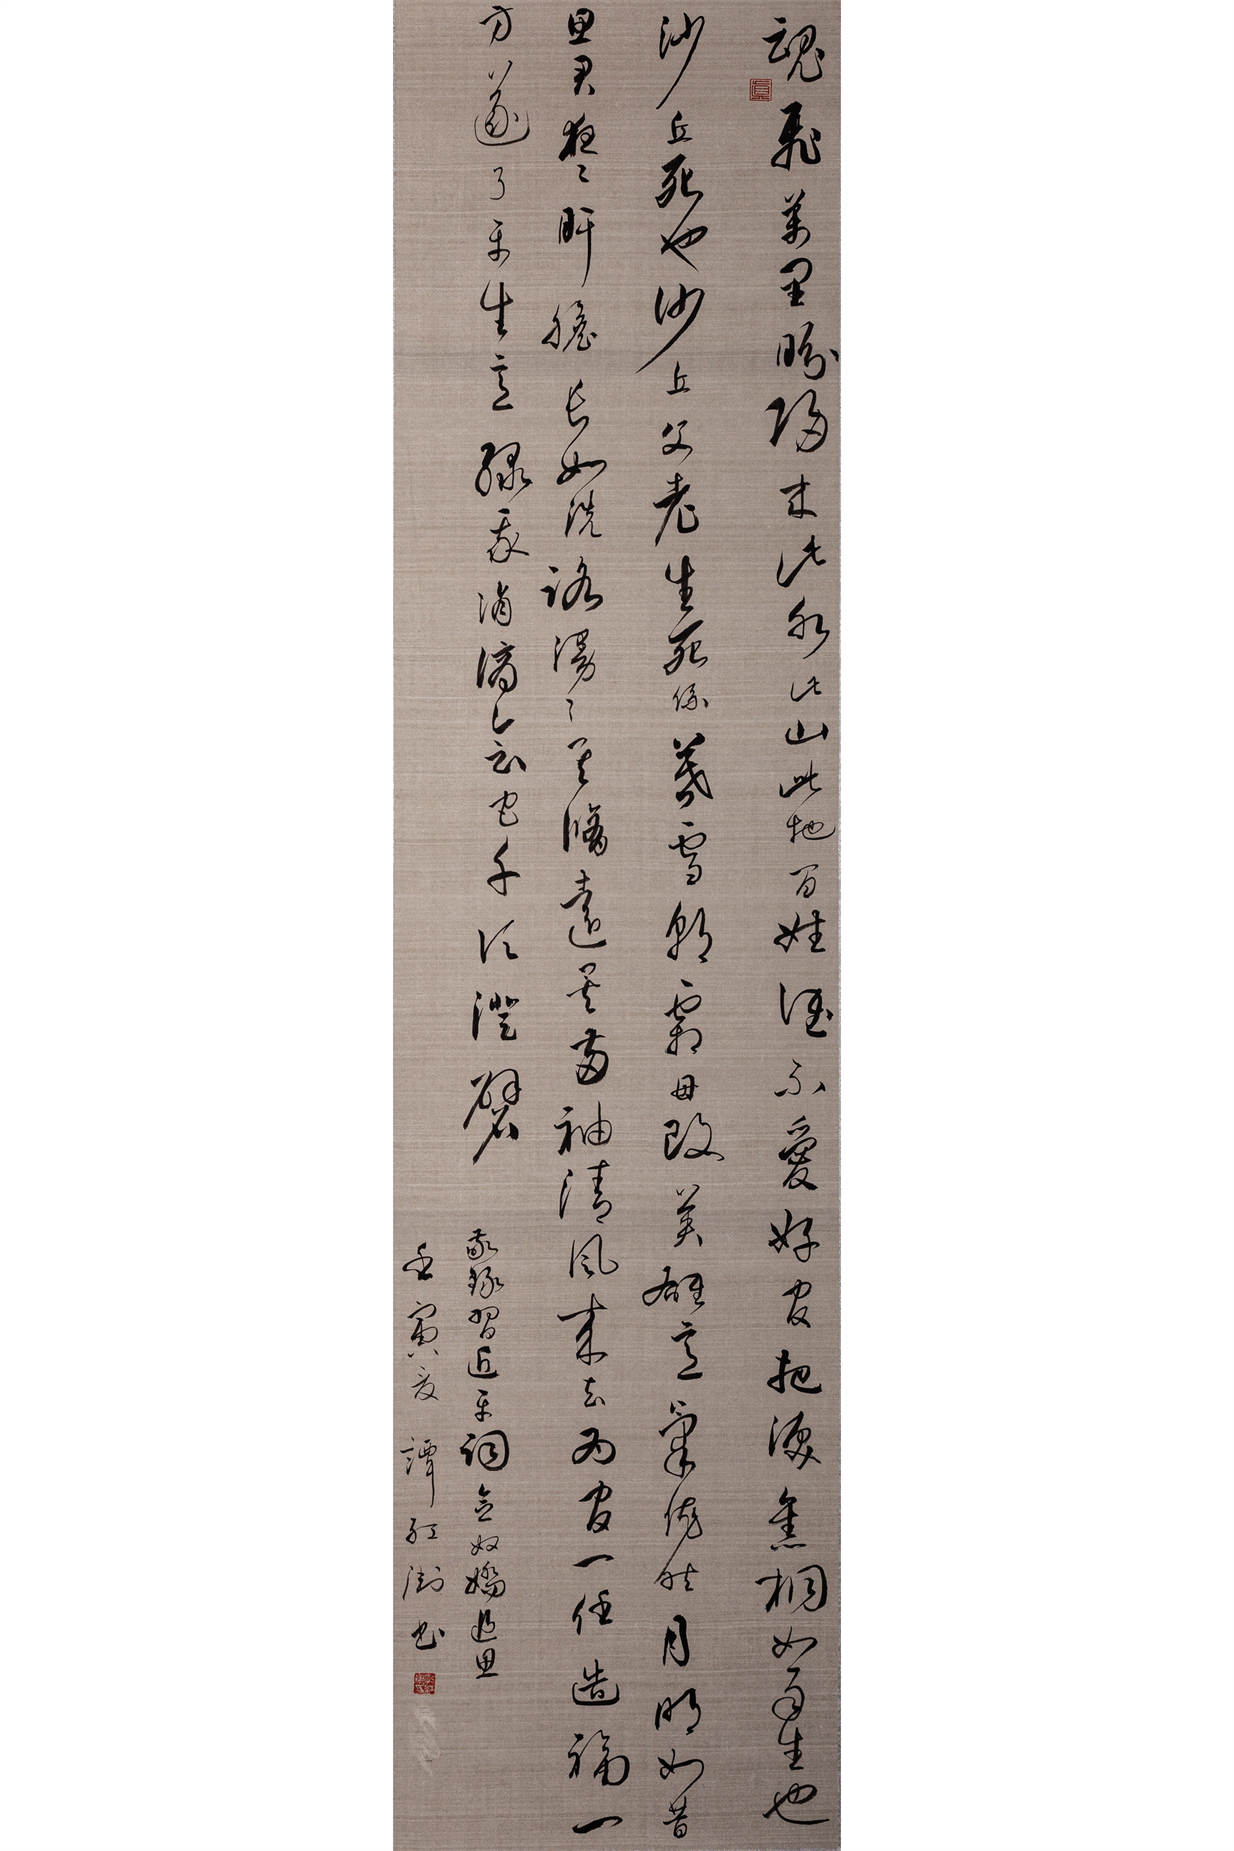 魂飛萬里盼歸來此水此山此地百姓誰不愛好官把淚焦桐成雨生也
沙丘死也沙丘父老生死係暮雪朝霜毋改英雄意氣依然月明如昔
思君夜夜肝膽長如洗路漫漫其修遠矣兩袖清風來去為官一任造福一
方遂了平生意綠我涓滴會它千頃澄碧
敬錄習近平詞念奴嬌追思
壬寅夏譚紅樹書